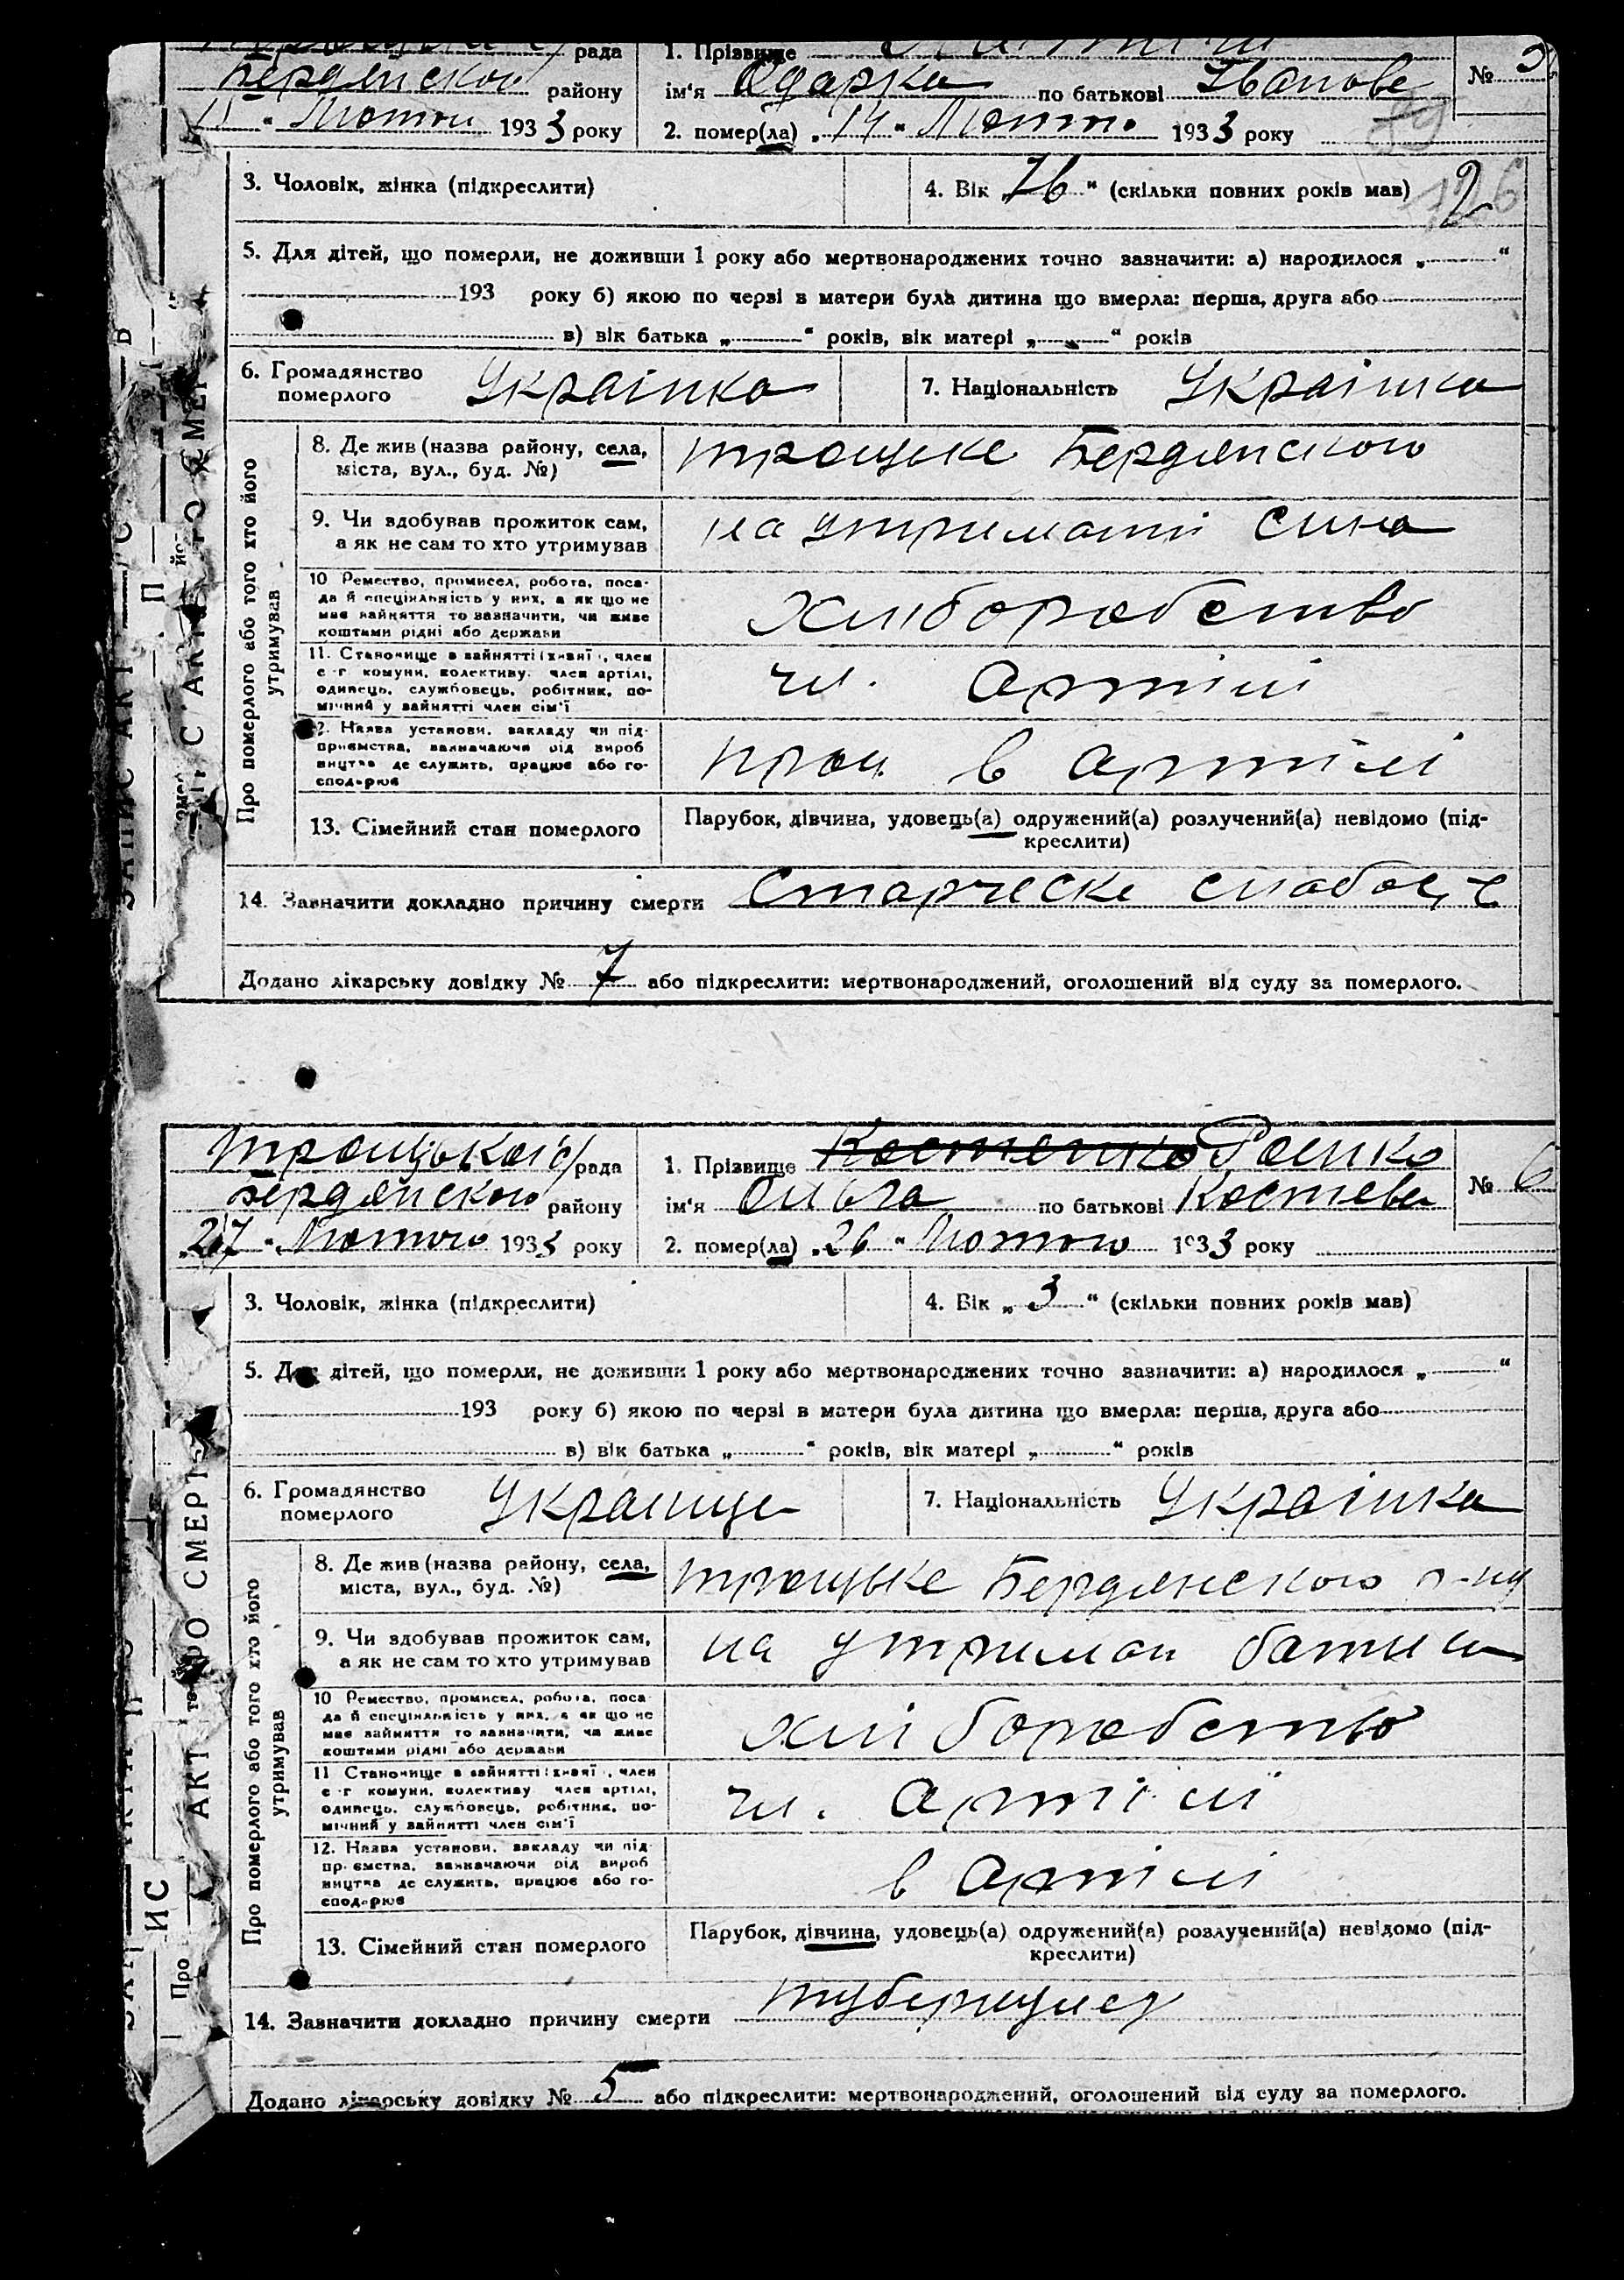 рада
Бердянского району
1933 року
1. Прізвище
ім'я Одарка по батькові Іванове
2. помер(ла) „14“ Лютого 1933 року
№ 5
3. Чоловік, жінка (підкреслити)
4. Вік 76 “ (скільки повних років мав)
5. Для дітей, що померли, не доживши 1 року або мертвонароджених точно зазначити: а) народилося „ “
193 року б) якою по черзі в матери була дитина що вмерла: перша, друга або
в) вік батька „ “ років, вік матері „ “ років
6. Громадянство
померлого
Українка
7. Національність Українка
Про померлого або того хто його
утримував
8. Де жив (назва району, села,
міста, вул., буд. №)
троцьке Бердянского
9. Чи здобував прожиток сам,
а як не сам то хто утримував
на утриманті сина
10 Ремество, промисел, робота, поса-
да й спеціяльність у них, а як що не
має зайняття то зазначити, чи живе
коштами рідні або держави
хліборобство
11. Становище в зайнятті (хазяї), член
с-г комуни, колективу, член артілі,
одинець, службовець, робітник, по-
мічний у зайнятті член сім'ї
чл. артілі
12. Назва установи, закладу чи під-
приємства, зазначаючи від вироб
ництва де служить, працює або го-
сподарює
прац. в артілі
13. Сімейний стан померлого
Парубок, дівчина, удовець(а) одружений(а) розлучений(а) невідомо (під-
креслити)
14. Зазначити докладно причину смерти старческе
Додано лікарську довідку № 7 або підкреслити: мертвонароджений, оголошений від суду за померлого.
Троцької с/рада
Бердянского району
„27“ Лютого 1933 року
1. Прізвище Костенко
ім'я Ольга по батькові Костева
2. помер(ла) „26“ Лютого 1933 року
№ 6
3. Чоловік, жінка (підкреслити)
4. Вік „3“ (скільки повних років мав)
5. Для дітей, що померли, не доживши 1 року або мертвонароджених точно зазначити: а) народилося „ “
193 року б) якою по черзі в матери була дитина що вмерла: перша, друга або
в) вік батька „ “ років, вік матері „ “ років
6. Громадянство
померлого
7. Національність Українка
Про померлого або того хто його
утримував
8. Де жив (назва району, села,
міста, вул., буд. №)
троцьке Бердянского р-ну
9. Чи здобував прожиток сам,
а як не сам то хто утримував
на утриман батька
10 Ремество, промисел, робота, поса-
да й спеціяльність у них, а як що не
має зайняття то зазначити, чи живе
коштами рідні або держави
хліборобство
11 Становище в зайнятті (хазяї), член
с-г комуни, колективу член артілі,
одинець, службовець, робітник, по-
мічний у зайнятті член сім'ї
чл. артілі
12. Назва установи, закладу чи під-
приємства, зазначаючи від вироб
ництва де служить, працює або го-
сподарює
в артілі
13. Сімейний стан померлого
Парубок, дівчина, удовець(а) одружений(а) розлучений(а) невідомо (під-
креслити)
14. Зазначити докладно причину смерти
Додано лікарську довідку № 5 або підкреслити: мертвонароджений, оголошений від суду за померлого.